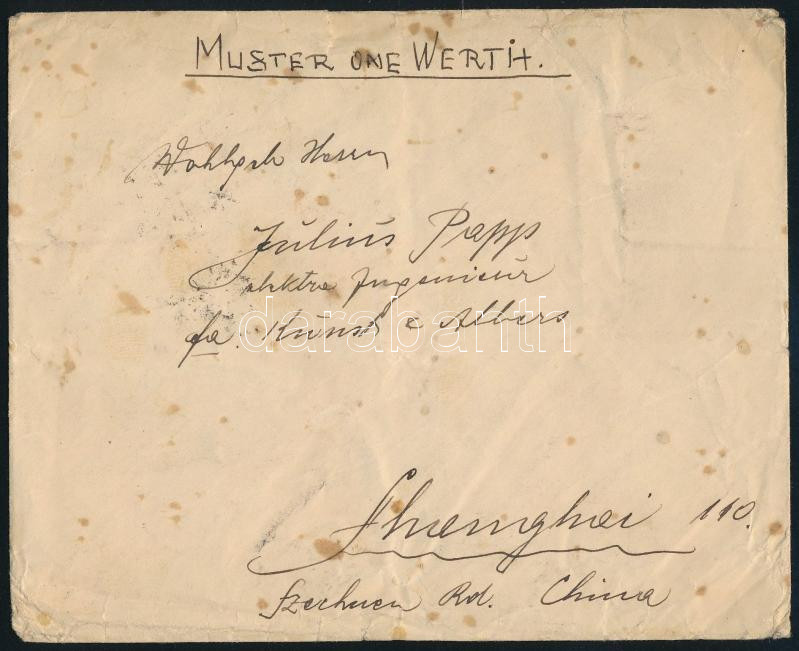 MUSTER ONE WERTH.
Wohlgeb Herrn
Julius Papp
elektro Ingenieur
fa. Kunst & Albers
darabanth
Shanghai 110.
Szechuen Rd. China